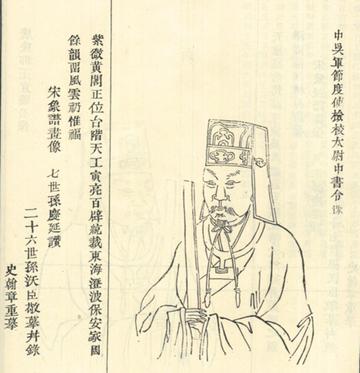 中吳軍節度使檢校太尉中書令
紫微黃閣正位台階天工寅亮百辟統裁東海澄波保安家國
餘韻留風雲礽惟福
宋象譜畫像 七世孫慶延讚
二十六世孫沃臣敬摹并錄
史翰章重摹